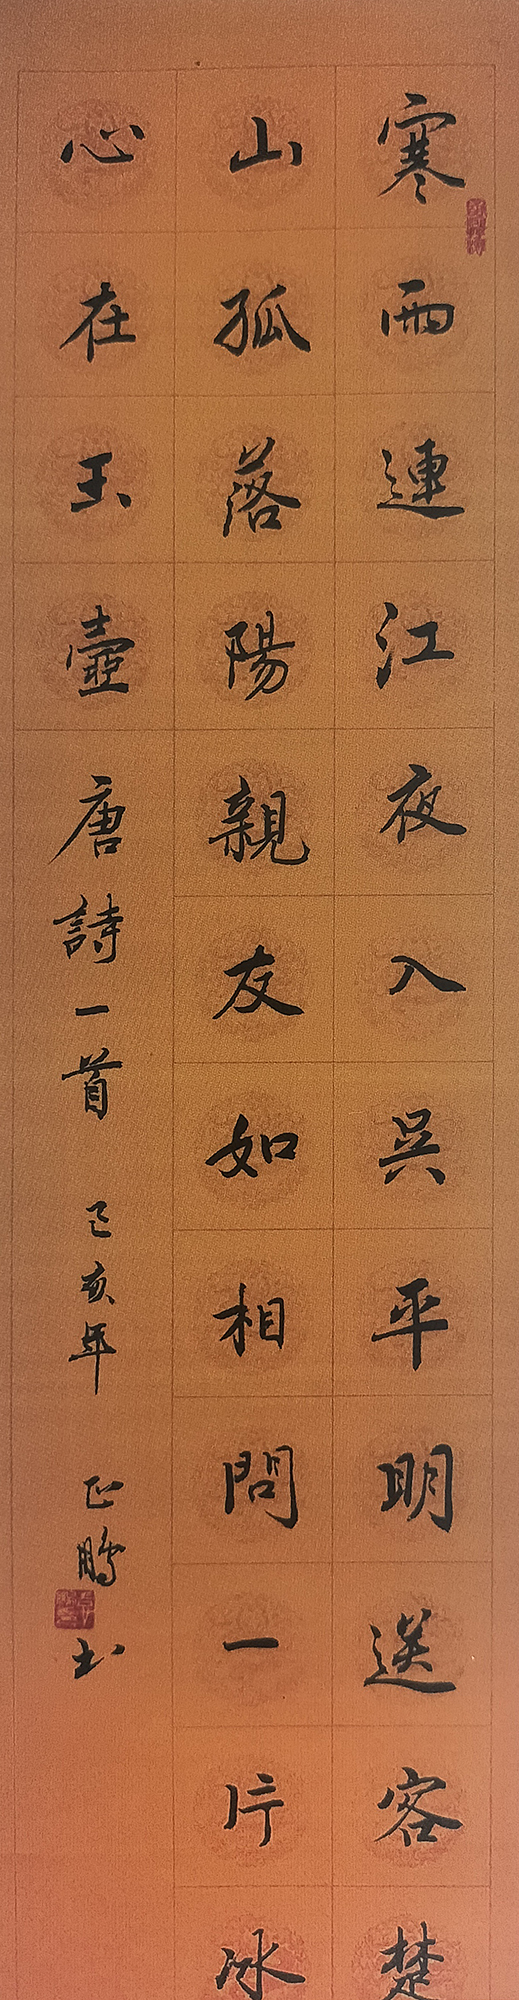 寒雨連江夜入吳平明送客楚
山孤落陽親友如相問一片冰
心在玉壺 唐詩一首 己亥年 正鵬书